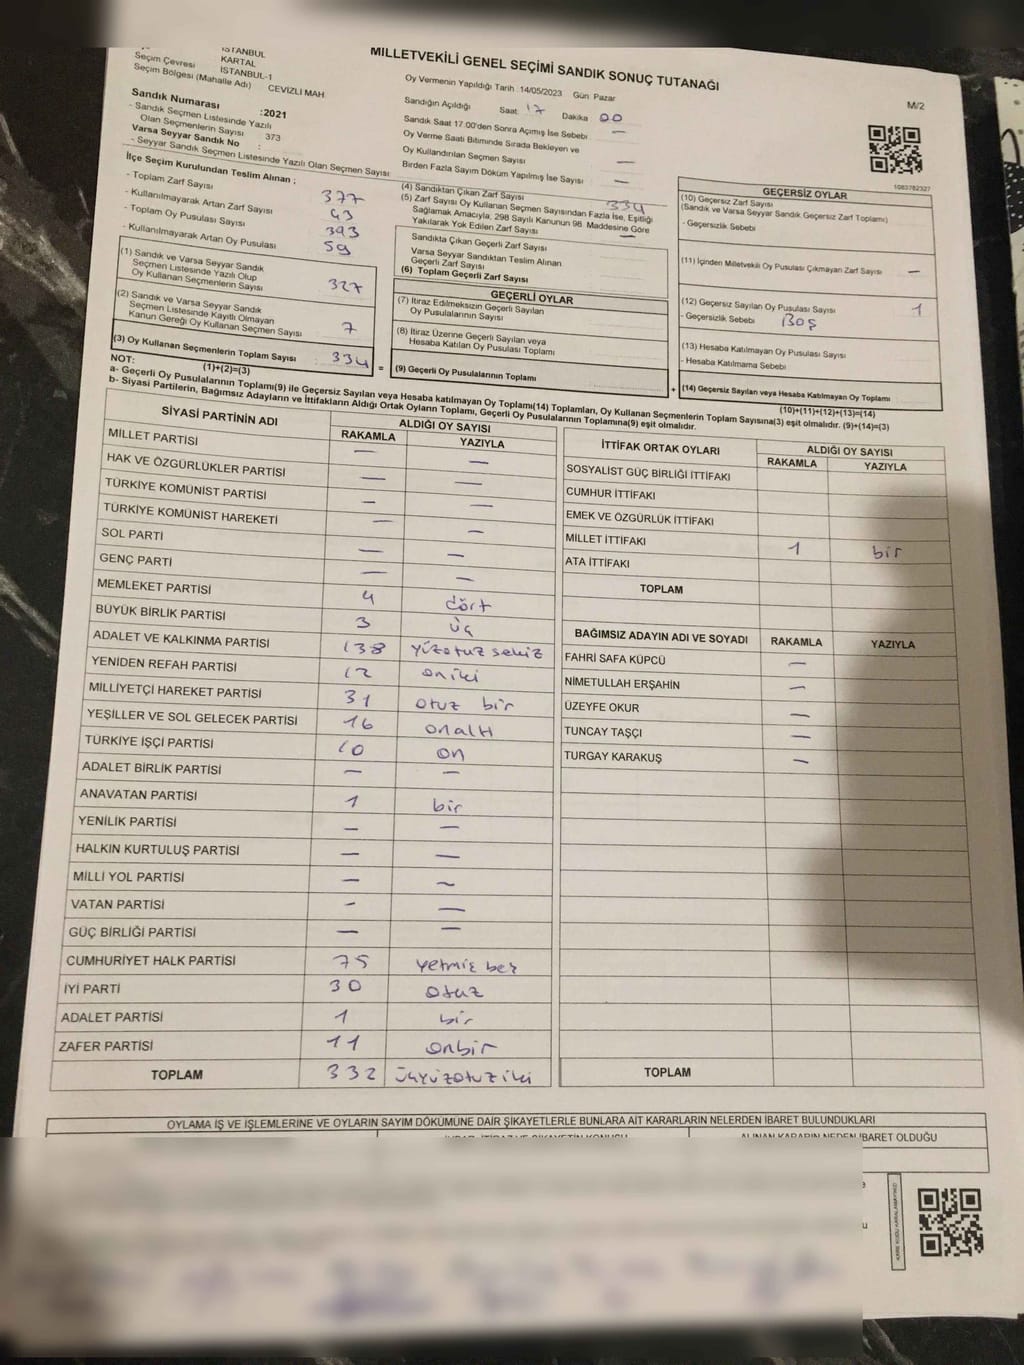 MİLLETVEKİLİ GENEL SEÇİMİ SANDIK SONUÇ TUTANAĞI
M/2
İSTANBUL
Seçim Çevresi KARTAL
İSTANBUL-1
Seçim Bölgesi (Mahalle Adı) CEVİZLİ MAH.
Sandık Numarası :2021
- Sandık Seçmen Listesinde Yazılı
Olan Seçmenlerin Sayısı 373
Varsa Seyyar Sandık No :
- Seyyar Sandık Seçmen Listesinde Yazılı Olan Seçmen Sayısı
Oy Vermenin Yapıldığı Tarih 14/05/2023 Gün Pazar
Sandığın Açıldığı Saat 17 Dakika 00
Sandık Saat 17:00'den Sonra Açımış İse Sebebi —
Oy Verme Saati Bitiminde Sırada Bekleyen ve
Oy Kullandırılan Seçmen Sayısı —
Birden Fazla Sayım Döküm Yapılmış İse Sayısı —
1083782327
İlçe Seçim Kurulundan Teslim Alınan ;
- Toplam Zarf Sayısı 377
- Kullanılmayarak Artan Zarf Sayısı 43
- Toplam Oy Pusulası Sayısı 393
- Kullanılmayarak Artan Oy Pusulası 59
(1) Sandık ve Varsa Seyyar Sandık
Seçmen Listesinde Yazılı Olup
Oy Kullanan Seçmenlerin Sayısı 327
(2) Sandık ve Varsa Seyyar Sandık
Seçmen Listesinde Kayıtlı Olmayan
Kanun Gereği Oy Kullanan Seçmen Sayısı 7
(3) Oy Kullanan Seçmenlerin Toplam Sayısı 334
(1)+(2)=(3)
(4) Sandıktan Çıkan Zarf Sayısı 334
(5) Zarf Sayısı Oy Kullanan Seçmen Sayısından Fazla İse, Eşitliği
Sağlamak Amacıyla, 298 Sayılı Kanunun 98. Maddesine Göre
Yakılarak Yok Edilen Zarf Sayısı —
Sandıkta Çıkan Geçerli Zarf Sayısı
Varsa Seyyar Sandıktan Teslim Alınan
Geçerli Zarf Sayısı
(6) Toplam Geçerli Zarf Sayısı
GEÇERLİ OYLAR
(7) İtiraz Edilmeksizin Geçerli Sayılan
Oy Pusulalarının Sayısı
(8) İtiraz Üzerine Geçerli Sayılan veya
Hesaba Katılan Oy Pusulası Toplamı
= (9) Geçerli Oy Pusulalarının Toplamı
GEÇERSİZ OYLAR
(10) Geçersiz Zarf Sayısı
(Sandık ve Varsa Seyyar Sandık Geçersiz Zarf Toplamı)
- Geçersizlik Sebebi
(11) İçinden Milletvekili Oy Pusulası Çıkmayan Zarf Sayısı —
(12) Geçersiz Sayılan Oy Pusulası Sayısı 1
- Geçersizlik Sebebi Boş
(13) Hesaba Katılmayan Oy Pusulası Sayısı
- Hesaba Katılmama Sebebi
+ (14) Geçersiz Sayılan veya Hesaba Katılmayan Oy Toplamı
(10)+(11)+(12)+(13)=(14)
NOT:
a- Geçerli Oy Pusulalarının Toplamı(9) ile Geçersiz Sayılan veya Hesaba katılmayan Oy Toplamı(14) Toplamları, Oy Kullanan Seçmenlerin Toplam Sayısına(3) eşit olmalıdır. (9)+(14)=(3)
b- Siyasi Partilerin, Bağımsız Adayların ve İttifakların Aldığı Ortak Oyların Toplamı, Geçerli Oy Pusulalarının Toplamına(9) eşit olmalıdır.
SİYASİ PARTİNİN ADI ALDIĞI OY SAYISI
RAKAMLA YAZIYLA
MİLLET PARTİSİ — —
HAK VE ÖZGÜRLÜKLER PARTİSİ — —
TÜRKİYE KOMÜNİST PARTİSİ — —
TÜRKİYE KOMÜNİST HAREKETİ — —
SOL PARTİ — —
GENÇ PARTİ — —
MEMLEKET PARTİSİ 4 dört
BÜYÜK BİRLİK PARTİSİ 3 üç
ADALET VE KALKINMA PARTİSİ 138 yüzotuz sekiz
YENİDEN REFAH PARTİSİ 12 oniki
MİLLİYETÇİ HAREKET PARTİSİ 31 otuz bir
YEŞİLLER VE SOL GELECEK PARTİSİ 16 onaltı
TÜRKİYE İŞÇİ PARTİSİ 10 on
ADALET BİRLİK PARTİSİ — —
ANAVATAN PARTİSİ 1 bir
YENİLİK PARTİSİ — —
HALKIN KURTULUŞ PARTİSİ — —
MİLLİ YOL PARTİSİ — —
VATAN PARTİSİ — —
GÜÇ BİRLİĞİ PARTİSİ — —
CUMHURİYET HALK PARTİSİ 75 yetmiş beş
İYİ PARTİ 30 otuz
ADALET PARTİSİ 1 bir
ZAFER PARTİSİ 11 onbir
TOPLAM 332 üçyüzotuziki
İTTİFAK ORTAK OYLARI ALDIĞI OY SAYISI
RAKAMLA YAZIYLA
SOSYALİST GÜÇ BİRLİĞİ İTTİFAKI
CUMHUR İTTİFAKI
EMEK VE ÖZGÜRLÜK İTTİFAKI
MİLLET İTTİFAKI 1 bir
ATA İTTİFAKI
TOPLAM
BAĞIMSIZ ADAYIN ADI VE SOYADI RAKAMLA YAZIYLA
FAHRİ SAFA KÜPCÜ —
NİMETULLAH ERŞAHİN —
ÜZEYFE OKUR —
TUNCAY TAŞÇI —
TURGAY KARAKUŞ —
TOPLAM
OYLAMA İŞ VE İŞLEMLERİNE VE OYLARIN SAYIM DÖKÜMÜNE DAİR ŞİKAYETLERLE BUNLARA AİT KARARLARIN NELERDEN İBARET BULUNDUKLARI
ALINAN KARARIN NEDEN İBARET OLDUĞU